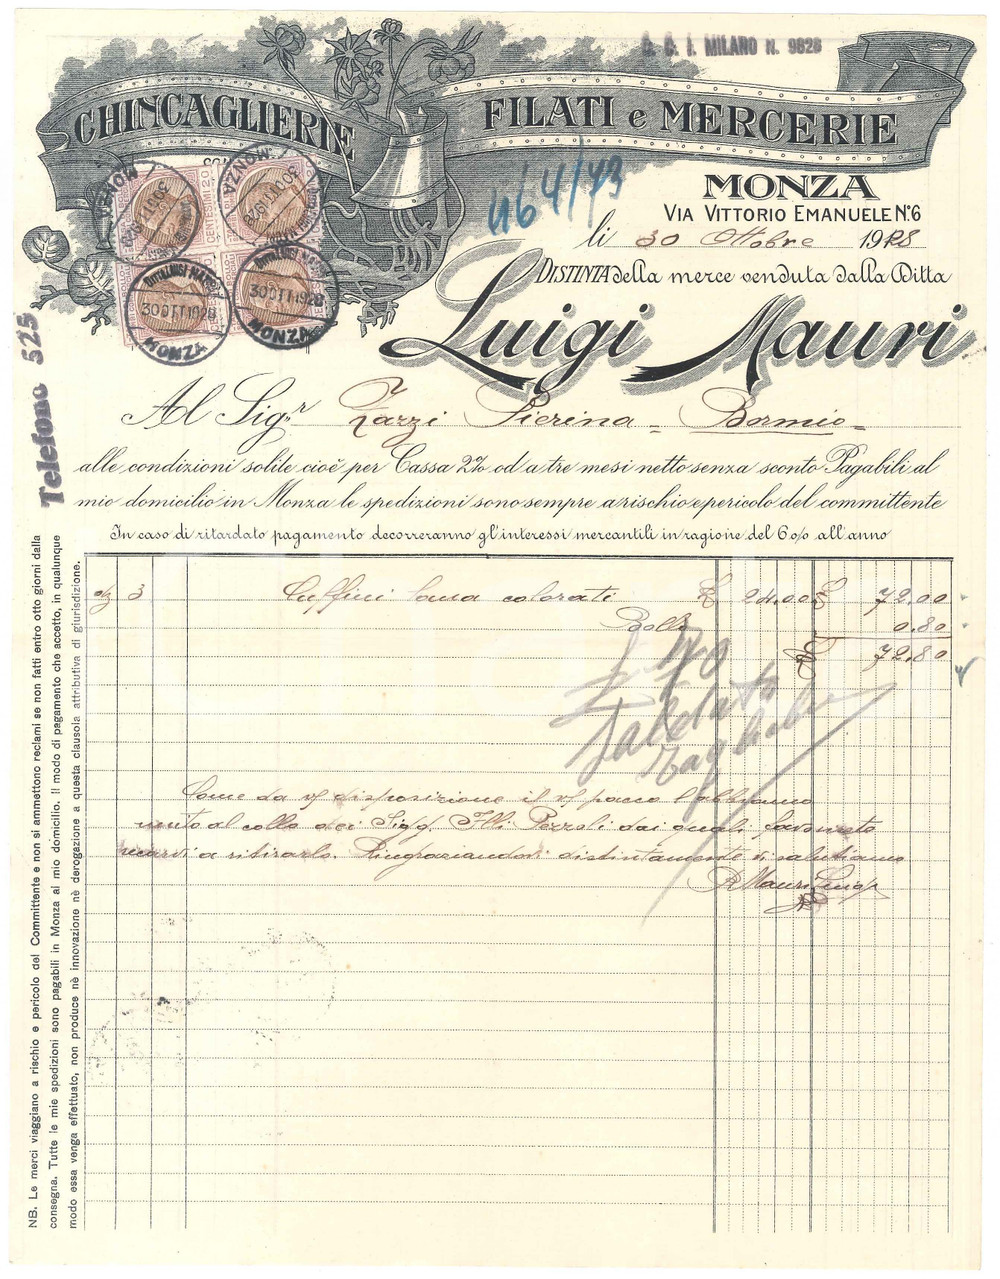 C. C. I. MILANO N. 9828
CHINCAGLIERIE
FILATI e MERCERIE
MONZA
VIA VITTORIO EMANUELE N.º 6
464/73
li 30 Ottobre 1928
DISTINTA della merce venduta dalla Ditta
Luigi Mauri
CENTESIMI 20
MONZA
30 OTT 1928
MONZA
30 OTT 1928
Ditta LUIGI MAURI
30 OTT 1928
MONZA
Ditta LUIGI MAURI
30 OTT 1928
MONZA
Telefono 525
Al Sig.r Zazzi Pierina - Bormio -
alle condizioni solite cioè per Cassa 2% od a tre mesi netto senza sconto Pagabili al
mio domicilio in Monza le spedizioni sono sempre a rischio e pericolo del committente
In caso di ritardato pagamento decorreranno gl'interessi mercantili in ragione del 6% all'anno
dz 3 Cuffini lana colorati £ 24.00 £ 72.00
Bollo 0.80
£ 72.80
£ 70
Saldato
Come da v/ disposizione il v/ pacco l'abbiamo
unito al collo dei Sigg. F.lli Pozzoli dai quali favorirete
mandare a ritirarlo. Ringraziandovi distintamente vi salutiamo
P. Mauri Luigi
NB. Le merci viaggiano a rischio e pericolo del Committente e non si ammettono reclami se non fatti entro otto giorni dalla
consegna. Tutte le mie spedizioni sono pagabili in Monza al mio domicilio. Il modo di pagamento che accetto, in qualunque
modo essa venga effettuato, non produce nè innovazione nè derogazione a questa clausola attributiva di giurisdizione.